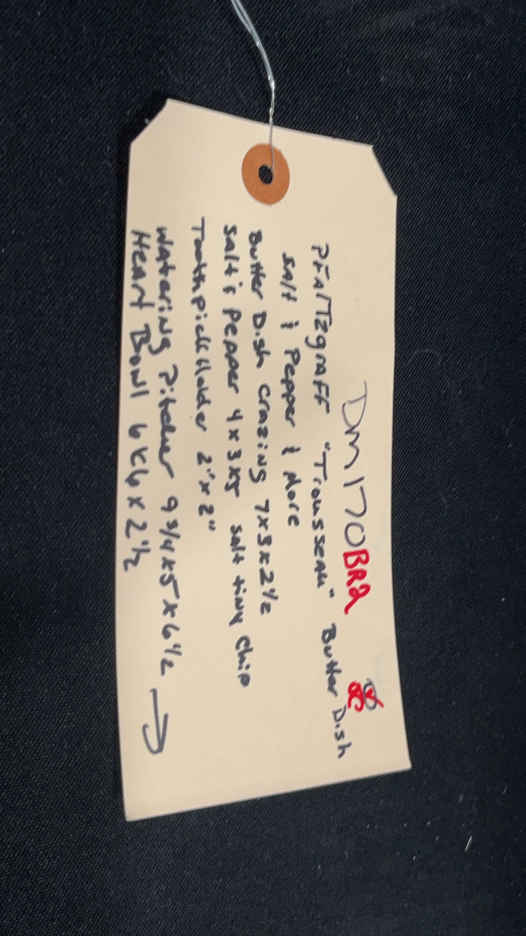 DM170BRA
Pfaltzgraff "Trousseau" Butter Dish
Salt & Pepper & More
Butter Dish Crazing 7x3x2 1/2
Salt & Pepper 4x3x5 Salt tiny chip
Toothpick Holder 2"x2"
Watering Pitcher 9 3/4x5x6 1/2 →
Heart Bowl 6x6x2 1/2